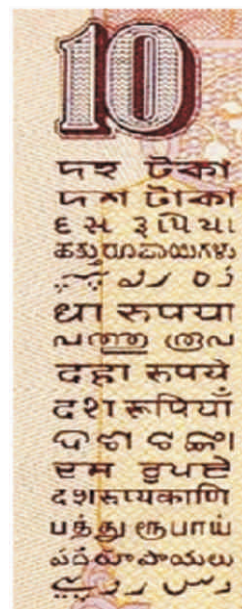 10
দহ টকা
দশ টাকা
દસ રૂપિયા
ಹತ್ತು ರೂಪಾಯಿಗಳು
धा रुपया
പത്തു രൂപ
दहा रुपये
दश रूपियाँ
ଦଶ ଟଙ୍କା
ਦਸ ਰੁਪਏ
दशरूप्यकाणि
பத்து ரூபாய்
పది రూపాయలు
دس روپیے